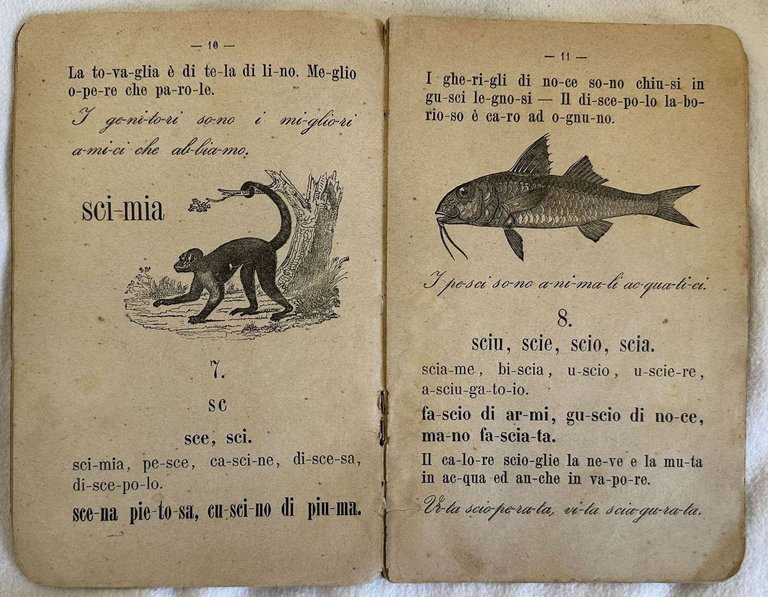 — 10 —
La to-va-glia è di te-la di li-no. Me-glio
o-pe-re che pa-ro-le.
I ge-ni-to-ri so-no i mi-glio-ri
a-mi-ci che ab-bia-mo.
sci-mia
7.
sc
sce, sci.
sci-mia, pe-sce, ca-sci-ne, di-sce-sa,
di-sce-po-lo.
sce-na pie-to-sa, cu-sci-no di piu-ma.
— 11 —
I ghe-ri-gli di no-ce so-no chiu-si in
gu-sci le-gno-si — Il di-sce-po-lo la-bo-
rio-so è ca-ro ad o-gnu-no.
I pe-sci so-no a-ni-ma-li ac-qua-ti-ci.
8.
sciu, scie, scio, scia.
scia-me, bi-scia, u-scio, u-scie-re,
a-sciu-ga-to-io.
fa-scio di ar-mi, gu-scio di no-ce,
ma-no fa-scia-ta.
Il ca-lo-re scio-glie la ne-ve e la mu-ta
in ac-qua ed an-che in va-po-re.
Vi-ta scio-pe-ra-ta, vi-ta scia-gu-ra-ta.